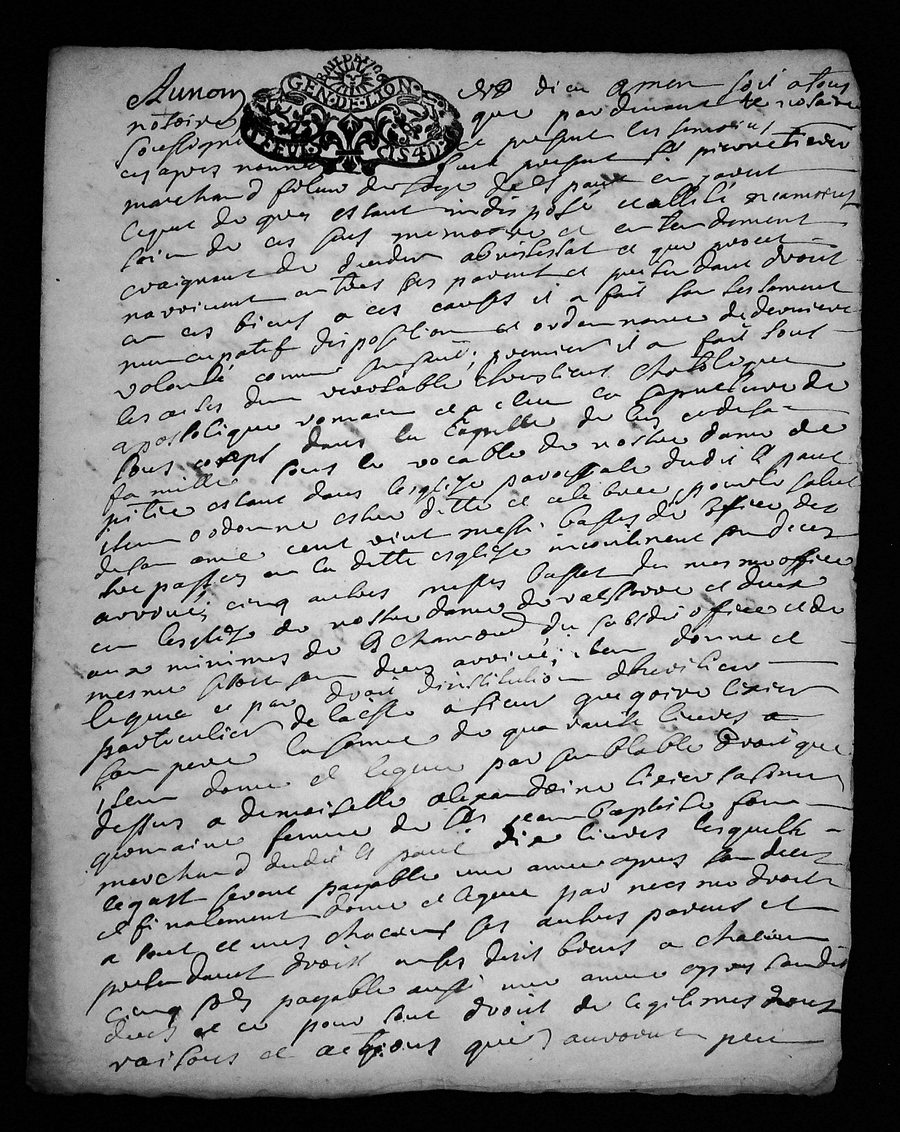 BAIL DE 1726
GEN·DE·LION
DEUX S 4 D
Au nom de dieu amen soit a tous
notoire que par devant le notaire
soussigné et present les temoins
cy apres nommes fust present Sr pierre
marchand fileur de soye de St paul en jarest
lequel de gres estant indisposé et allité
soin de ces sens memoire et entendement
craignant de deceder abintestat et que proces
narrivent entres ses parents et pretendant droit
en ces biens a ces causes il a fait son testament
nuncupatif disposition et ordonnance de derniere
volonté comme sensuit, premier il a fait tous
les actes dun veritable chrestient catholique
apostolique romain et a eleu sa sepulture de
sous corps dans la Chapelle de
famille sous le vocable de nostre dame de
pitié estant dans lesglise parossiale dudit St paul
item ordonne estre ditte et celebree pour le salut
de son ame cent vint messes basses de office des
trepasses en la ditte esglise incontinent son deces
arrivé, cinq autres messes basses du mesme office
en lesglise de nostre dame de valfleurie et
aux minimes de St chamond du susdit office et de
mesme son deces arrivé; item donne et
legue et par droit dinstitution dheritier
particulier delaisse a sieur gregoire
son pere la somme de quarante livres
item donne et legue par semblable droit que
dessus a demoiselle alexandrine sa
germaine femme de Sr jean baptiste
marchand dudit St paul dix livres lesquels
legats seront payable une annee apres son deces
et finalement donne et legue par mesme droit
a tout et uns chacuns ses autres parens et
pretendants droit en ses dits biens a chacun
cinq sols payable aussi une annee apres sondit
deces et ce pour tout droit de legitimes droits
raisons et actions quils auroient peu